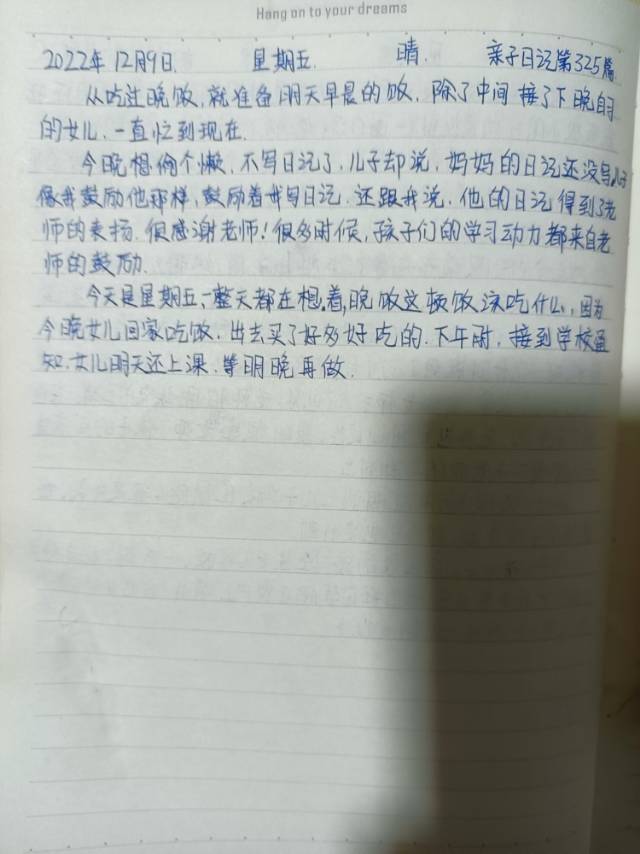 Hang on to your dreams
2022年12月9日. 星期五. 晴. 亲子日记第325篇
从吃过晚饭,就准备明天早晨的饭,除了中间接了下晚自习
的女儿,一直忙到现在.
今晚想偷个懒,不写日记了,儿子却说,妈妈的日记还没写,儿子
像我鼓励他那样,鼓励着我写日记.还跟我说,他的日记得到了老
师的表扬.很感谢老师!很多时候,孩子们的学习动力都来自老
师的鼓励.
今天是星期五,一整天都在想着,晚饭这顿饭该吃什么,因为
今晚女儿回家吃饭.出去买了好多好吃的.下午时,接到学校通
知.女儿明天还上课.等明晚再做.